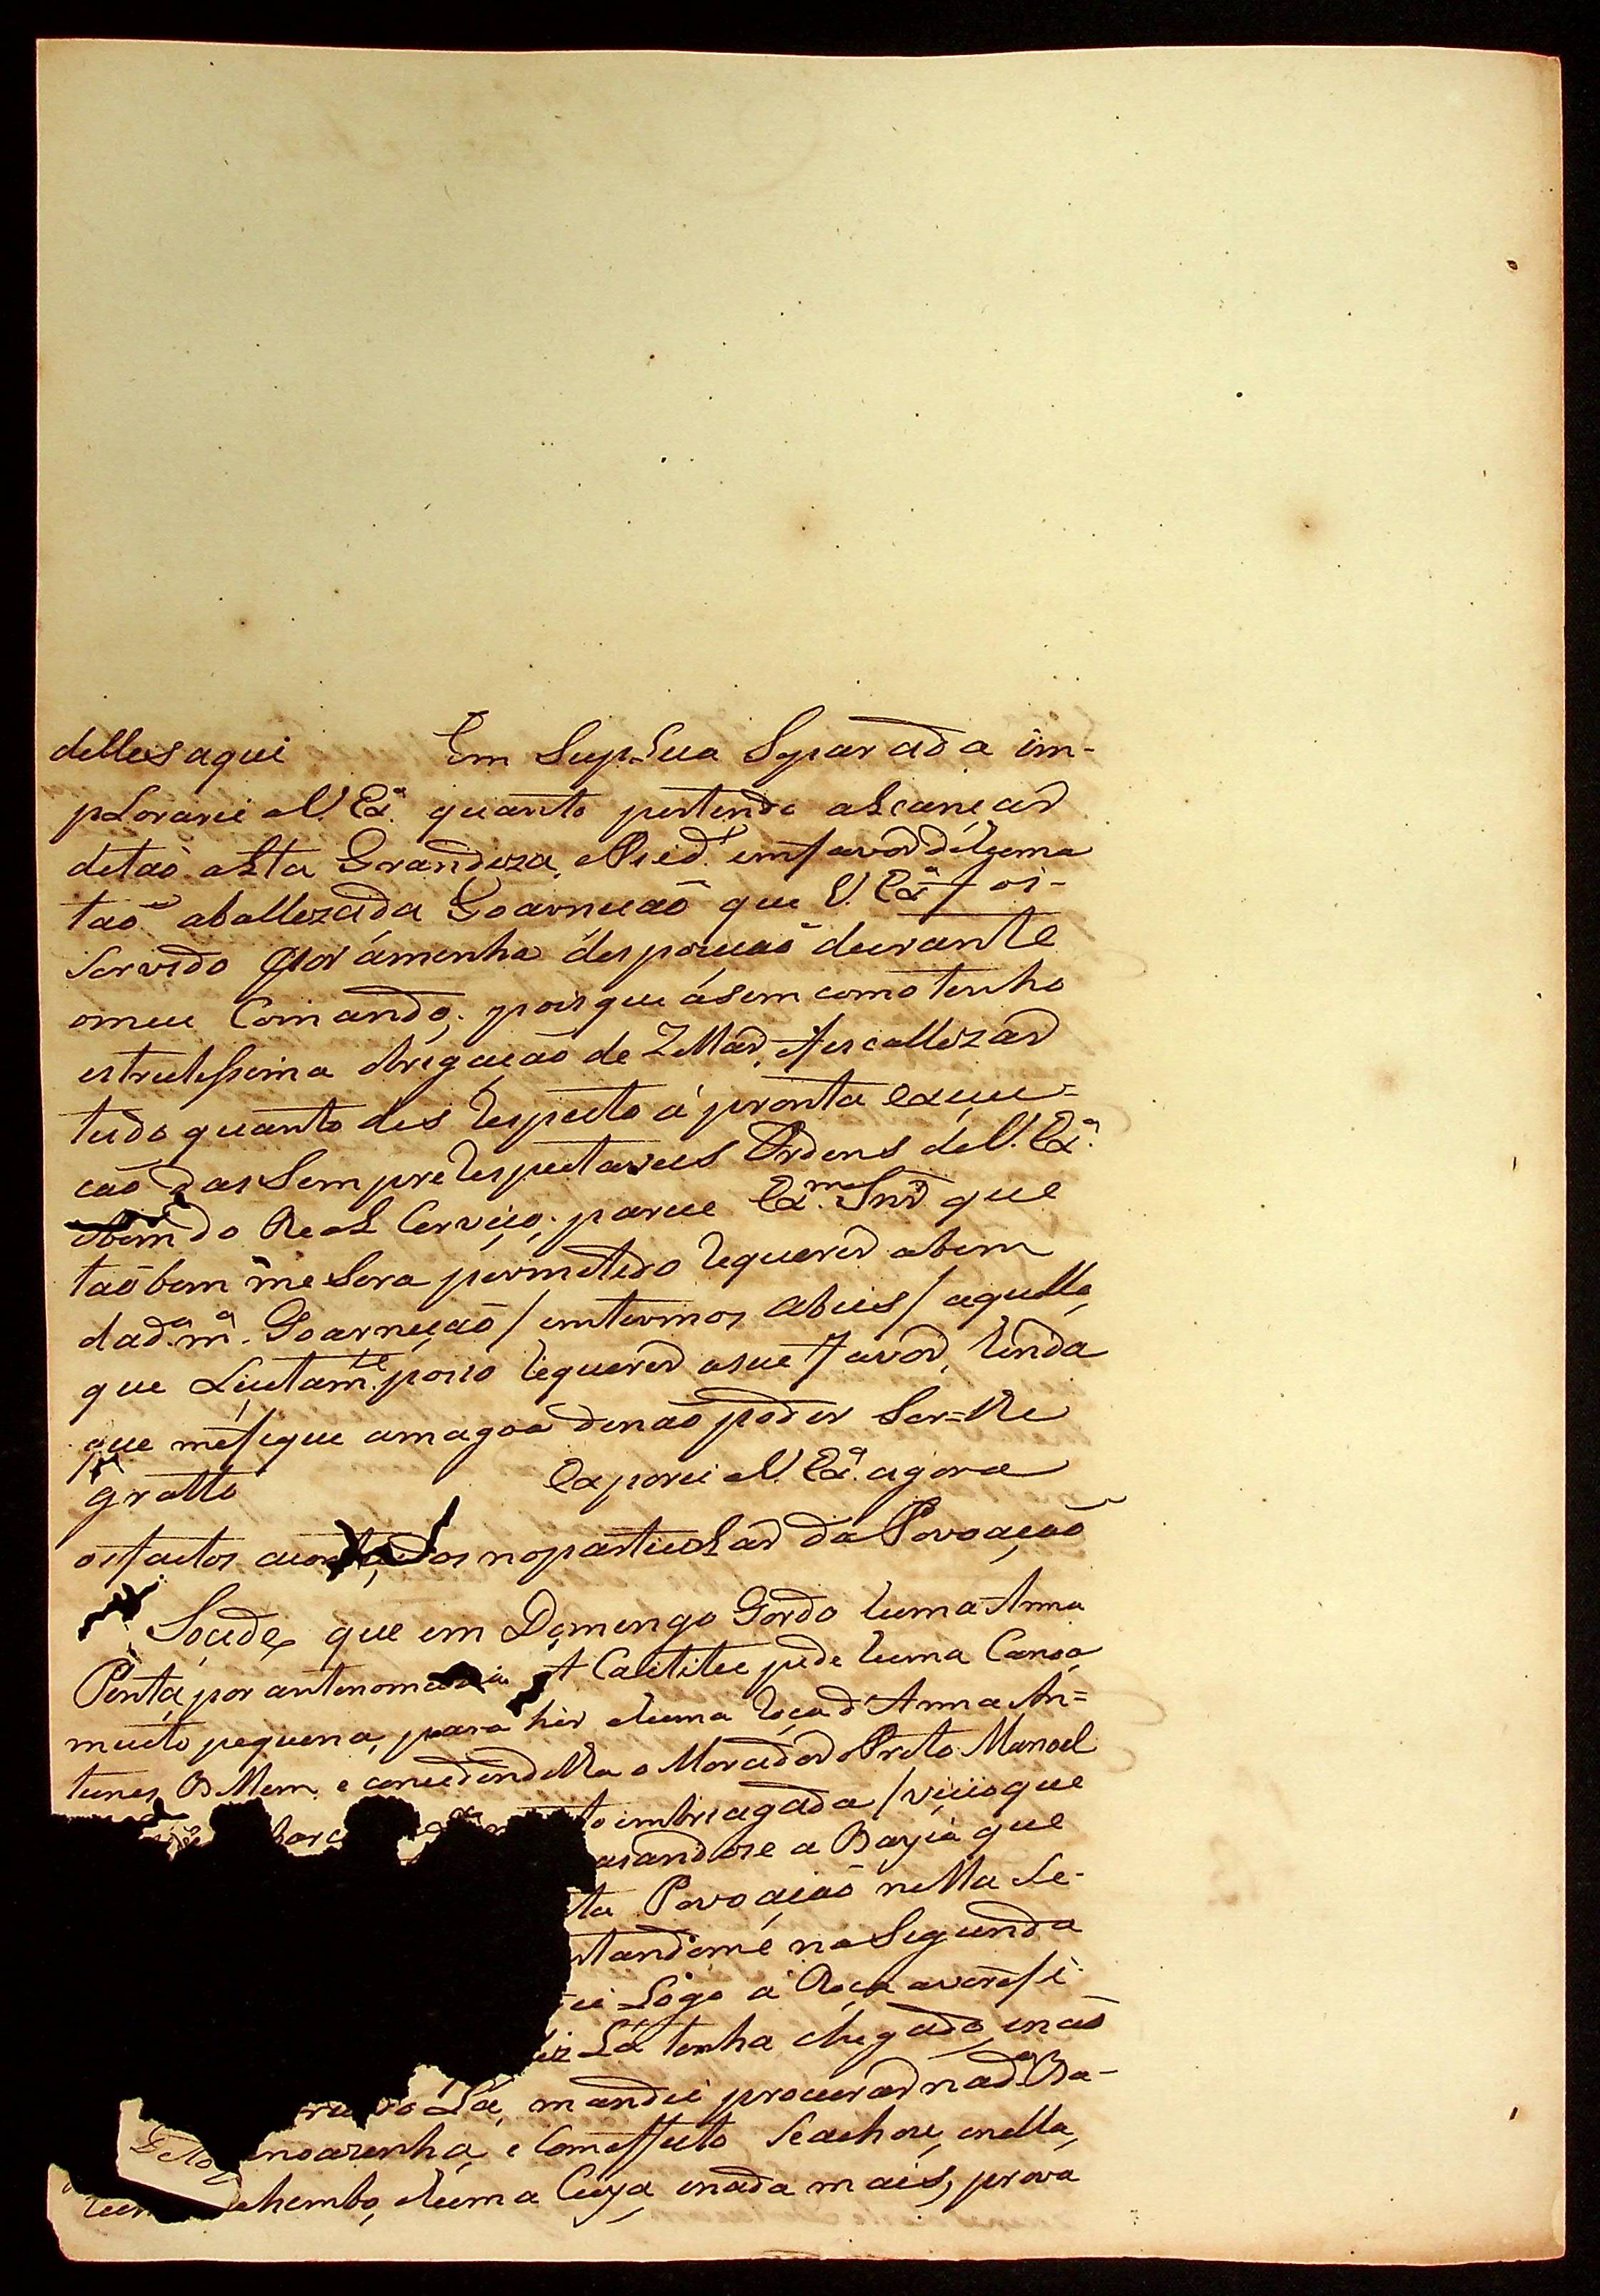 delles aqui Em Suplica Separada im-
plorarei a V. Exª. quanto pertendo alcançar
de tão alta Grandeza, e Pied.e em favor de huma
tão aballizada Goarnição que V. Exª foi
servido por á minha despozição durante
o meu Comando; pois que ásem como tenho
estrictissima obrigação de Zellar, e fiscallizar
tudo quanto dis respeito á pronta execu=
cão das Sempre respectaveis Ordens de V. Exª.
e bem do Real Cerviço; parece Exmº. Snr. que
tão bem me Sera permetido requerer a bem
da d.ª m.ª Goarnição / em termos abeis / aquillo
que Licitam.te poso requerer a sue favor, Linda
que me fique a magoa de não poder Ser=lhe
gratto Exporei a V. Exª. agora
os factos acontecidos no particular da Povoação
Socede, que em Domingo Gordo huma Anna
Penta, por antonomazia A Caetitu pede huma Canoa
muito pequena, para hir a huma roça d'Anna An=
tunes B. e concedendolha o Morador Preto Manoel
embriagada / vicio que
asandose a Bayia que
ta Povoação nella se-
ntandome na Segunda
ei Logo á Roça a ver se
Lá tenha chegado, e não
Lá, mandei procurar na d.ª Ba-
noazinha, e Com effeito Seachou, nella,
hum chembo, e huma Cuya, e nada mais, prova